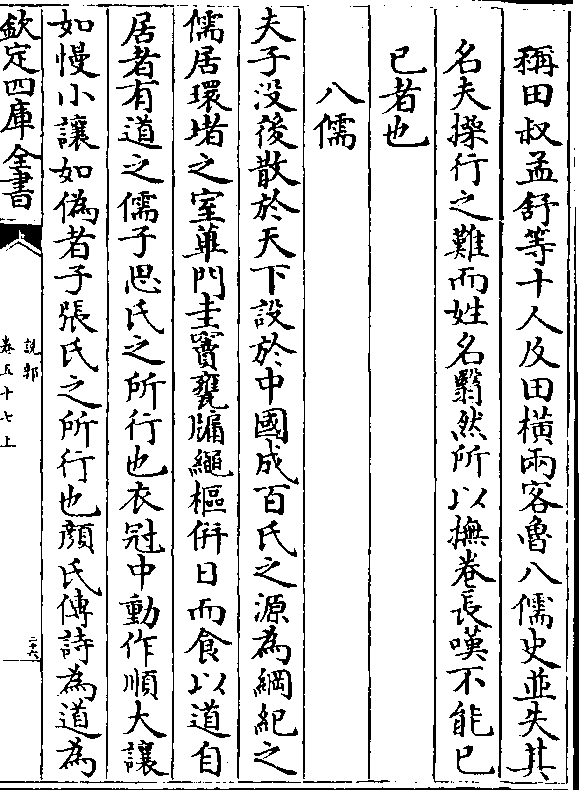 稱田叔孟舒等十人及田橫兩客魯八儒史並失其
名夫操行之難而姓名翳然所以撫卷長嘆不能已
已者也
八儒
夫子没後散於天下設於中國成百氏之源為綱紀之
儒居環堵之室蓽門圭竇甕牖繩樞併日而食以道自
居者有道之儒子思氏之所行也衣冠中動作順大讓
如慢小讓如偽者子張氏之所行也顔氏傳詩為道為
欽定四庫全書
說郛
卷五十七上